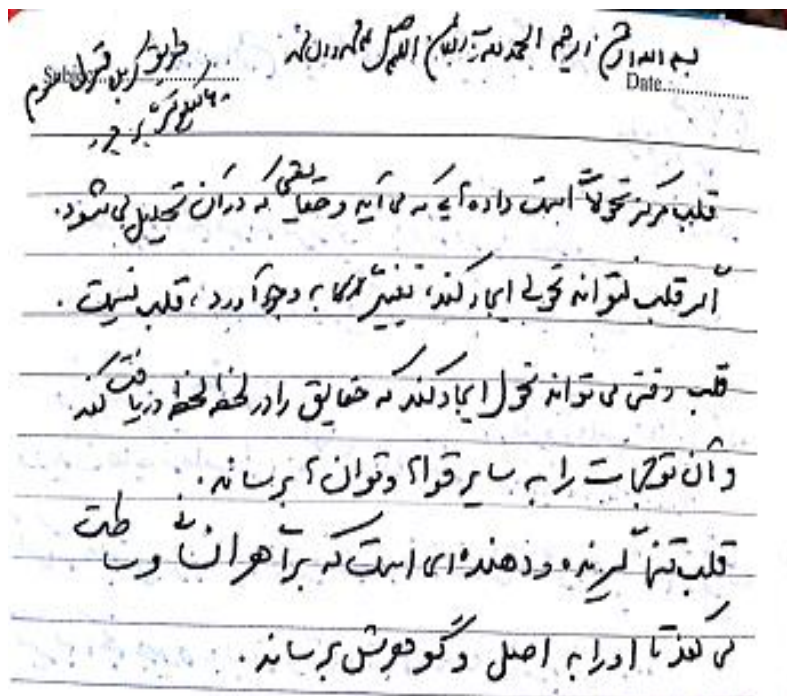 بسم الله الرحمن الرحیم الحمدلله رب العالمین اللهم صل علی محمد و آل محمد
Subject:
Date:
طریق کربلا منزل سوم
قلب مرکز تحولات است داده هایی که می آید و حقایقی که در آن تحلیل می شود.
اگر قلب نتواند تحولی ایجاد کند، تغییرات را به وجود آورد، قلب نیست.
قلب وقتی می تواند تحول ایجاد کند که حقایق را در لحظه لحظه دریافت کند.
و آن توجهات را به سایر قواها و توان ها برساند.
قلب تنها گیرنده و دهنده ای است که برای هر انسانی وساطت
می کند تا او را به اصل و گوهرش برساند.